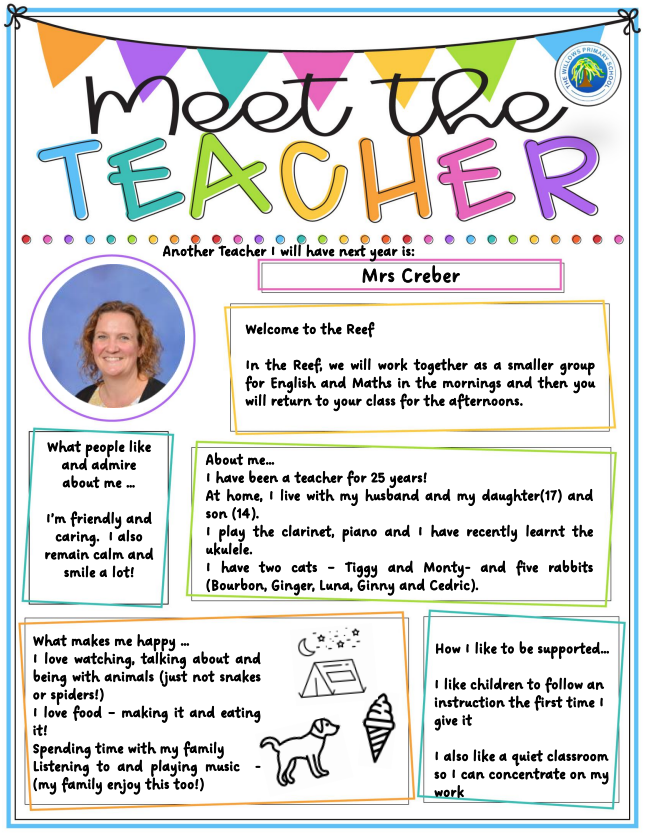 Meet the
TEACHER
THE WILLOWS PRIMARY SCHOOL
Another Teacher I will have next year is:
Mrs Creber
Welcome to the Reef
In the Reef, we will work together as a smaller group
for English and Maths in the mornings and then you
will return to your class for the afternoons.
What people like
and admire
about me ...
I'm friendly and
caring. I also
remain calm and
smile a lot!
About me...
I have been a teacher for 25 years!
At home, I live with my husband and my daughter(17) and
son (14).
I play the clarinet, piano and I have recently learnt the
ukulele.
I have two cats – Tiggy and Monty- and five rabbits
(Bourbon, Ginger, Luna, Ginny and Cedric).
What makes me happy ...
I love watching, talking about and
being with animals (just not snakes
or spiders!)
I love food – making it and eating
it!
Spending time with my family
Listening to and playing music -
(my family enjoy this too!)
How I like to be supported...
I like children to follow an
instruction the first time I
give it
I also like a quiet classroom
so I can concentrate on my
work